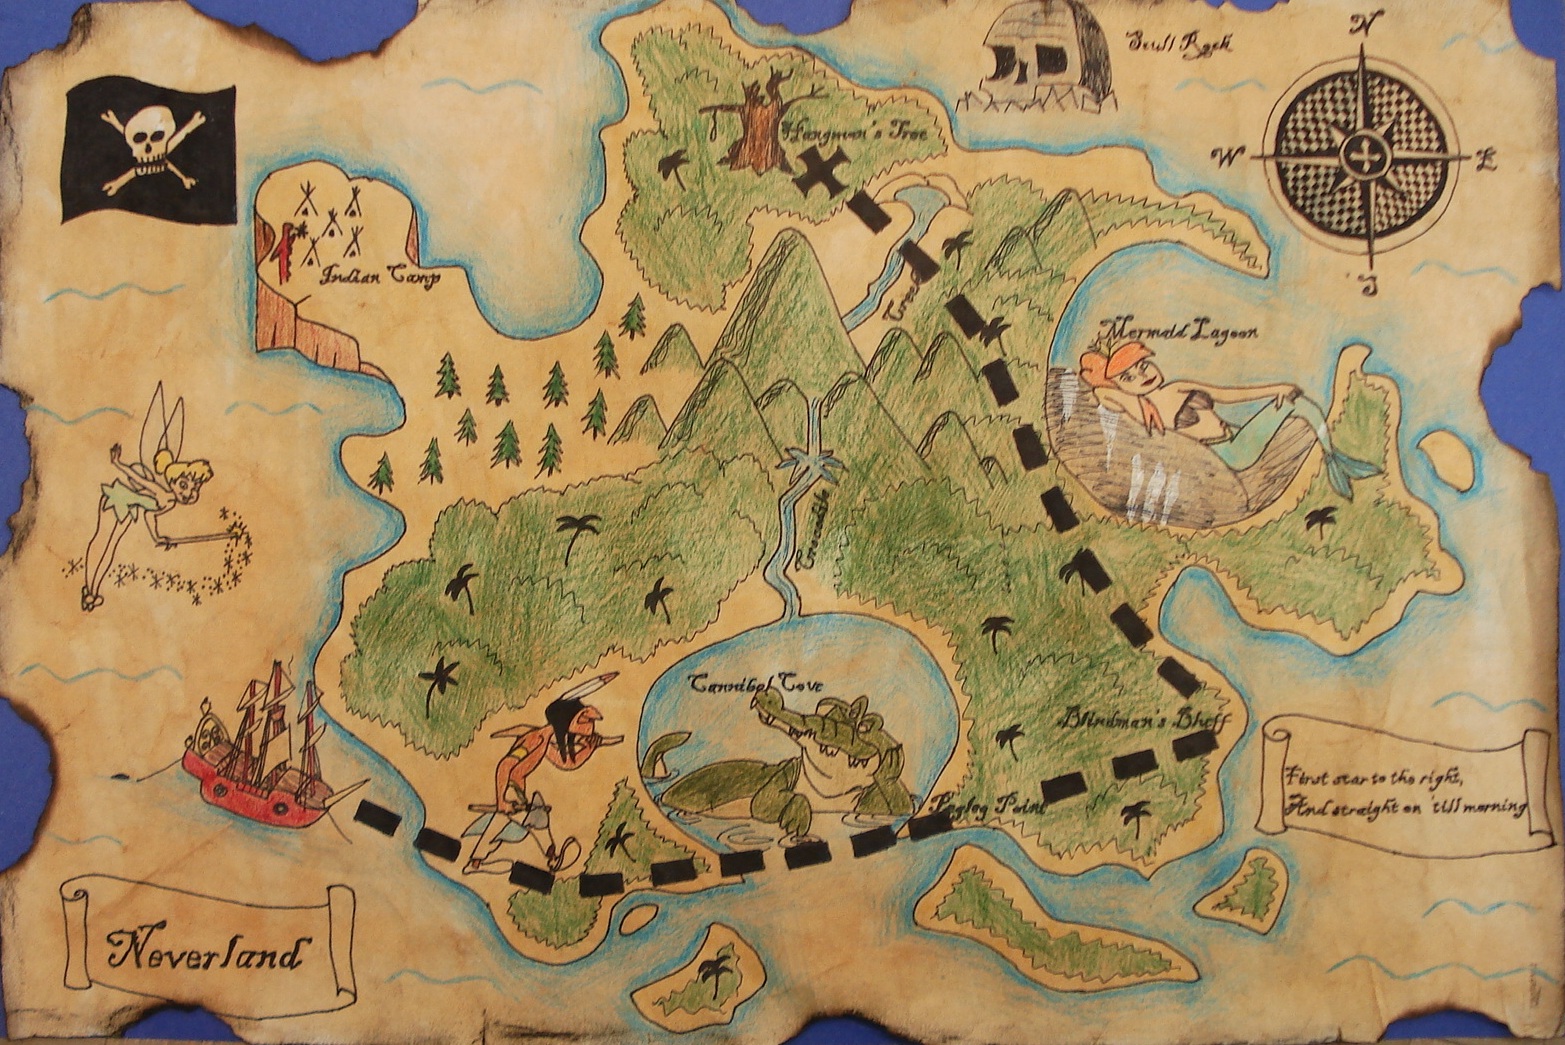 Scull Rock
N
Hangman's Tree
W
E
Indian Camp
S
Mermaid Lagoon
Crocodile
Creek
Cannibal Cove
Blindman's Bluff
Pegleg Point
First star to the right,
And straight on till morning
Neverland